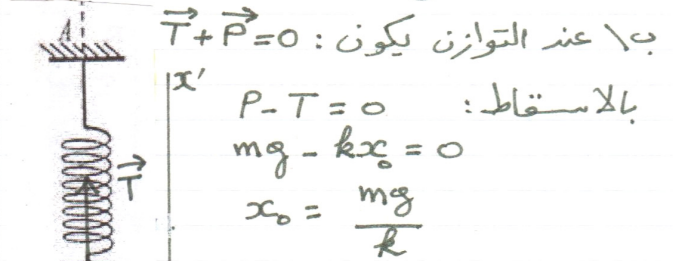 ب\ عند التوازن يكون : T⃗ + P⃗ = 0
A
x'
بالاسقاط : P - T = 0
mg - kx₀ = 0
T⃗
x₀ = mg / k